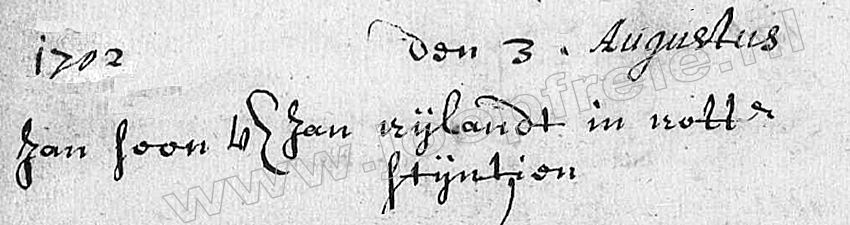 1702 den 3. Augustus
Jan soon v { Jan rijlandt in rottr
stijntien
www.joopfreie.nl